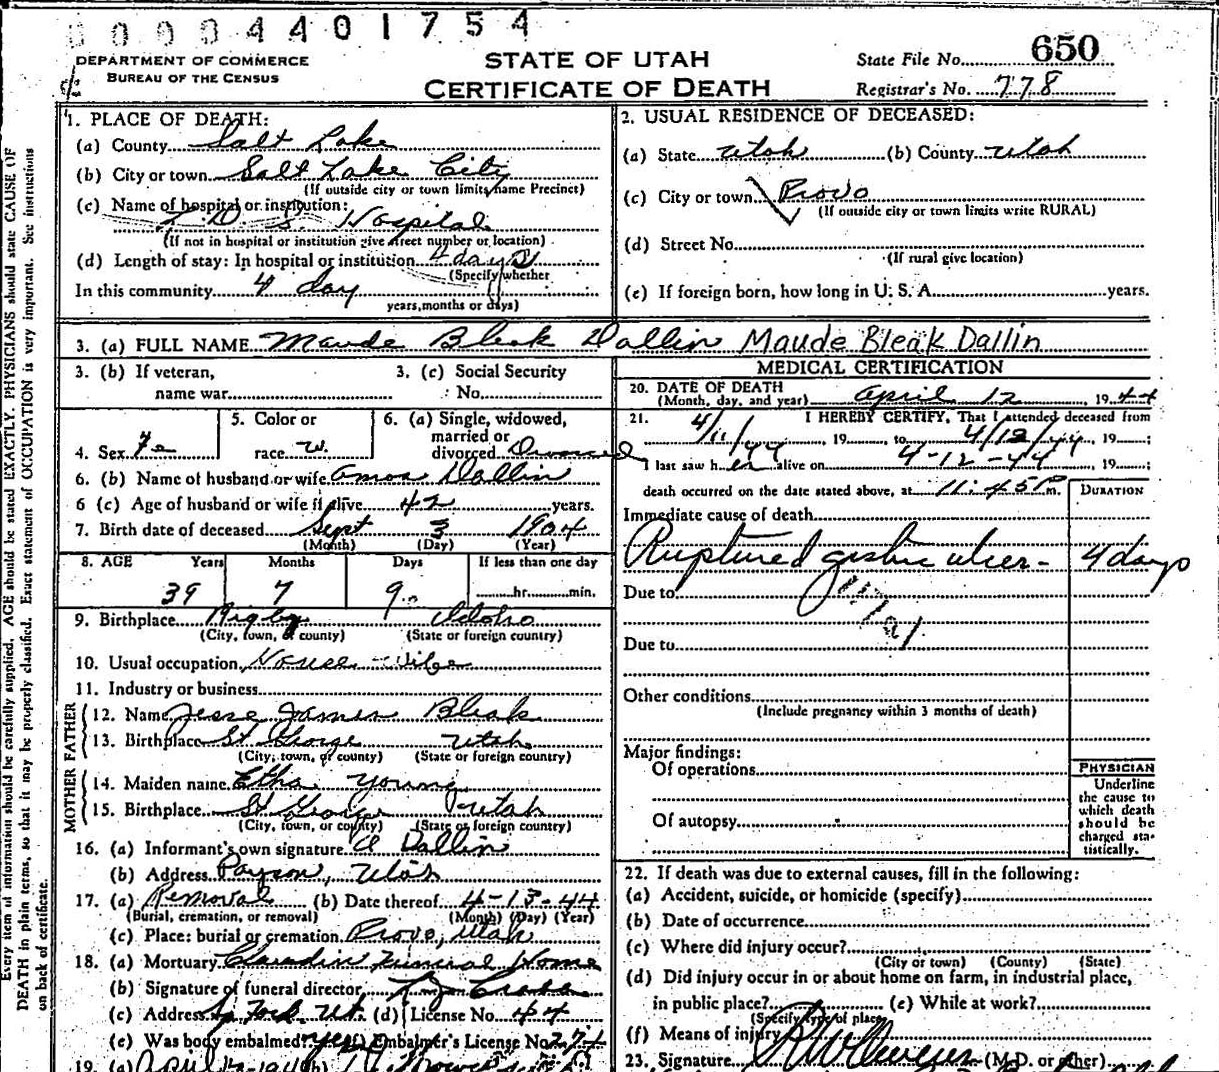 00004401754
DEPARTMENT OF COMMERCE
BUREAU OF THE CENSUS
STATE OF UTAH
CERTIFICATE OF DEATH
State File No. 650
Registrar's No. 778
Every item of information should be carefully supplied. AGE should be stated EXACTLY. PHYSICIANS should state CAUSE OF
DEATH in plain terms, so that it may be properly classified. Exact statement of OCCUPATION is very important. See instructions
on back of certificate.
1. PLACE OF DEATH:
(a) County Salt Lake
(b) City or town Salt Lake City
(If outside city or town limits name Precinct)
(c) Name of hospital or institution:
L. D. S. Hospital
(If not in hospital or institution give street number or location)
(d) Length of stay: In hospital or institution 4 days
(Specify whether
In this community 4 day
years, months or days)
2. USUAL RESIDENCE OF DECEASED:
(a) State Utah (b) County Utah
(c) City or town Provo
(If outside city or town limits write RURAL)
(d) Street No.
(If rural give location)
(e) If foreign born, how long in U. S. A. years.
3. (a) FULL NAME Maude Bleak Dallin Maude Bleak Dallin
3. (b) If veteran,
name war
3. (c) Social Security
No.
4. Sex Fe
5. Color or
race w.
6. (a) Single, widowed,
married or
divorced Divorced
6. (b) Name of husband or wife Amos Dallin
6 (c) Age of husband or wife if alive 42 years.
7. Birth date of deceased Sept 3 1904
(Month) (Day) (Year)
8. AGE Years Months Days If less than one day
39 7 9 hr. min.
9. Birthplace Rigby Idaho
(City, town, or county) (State or foreign country)
10. Usual occupation House-wife
11. Industry or business
FATHER
12. Name Jesse James Bleak
13. Birthplace St George Utah
(City, town, or county) (State or foreign country)
MOTHER
14. Maiden name Etha Young
15. Birthplace St George Utah
(City, town, or county) (State or foreign country)
16. (a) Informant's own signature A Dallin
(b) Address Payson, Utah
17. (a) Removal (b) Date thereof 4-13-44
(Burial, cremation, or removal) (Month) (Day) (Year)
(c) Place: burial or cremation Provo, Utah
18. (a) Mortuary Claudin Funeral Home
(b) Signature of funeral director
(c) Address Sp Fork, Ut. (d) License No. 44
(e) Was body embalmed? yes (f) Embalmer's License No. 274
19. (a) April
MEDICAL CERTIFICATION
20. DATE OF DEATH
(Month, day, and year) April 12 1944
21. I HEREBY CERTIFY, That I attended deceased from
4/11/44, 19 to 4/12/44, 19 ;
I last saw her alive on 4-12-44, 19 ;
death occurred on the date stated above, at 11:45 P m.
DURATION
Immediate cause of death
Ruptured gastric ulcer - 4 days
Due to
117a1
Due to
Other conditions
(Include pregnancy within 3 months of death)
Major findings:
Of operations
Of autopsy
PHYSICIAN
Underline
the cause to
which death
should be
charged sta-
tistically.
22. If death was due to external causes, fill in the following:
(a) Accident, suicide, or homicide (specify)
(b) Date of occurrence
(c) Where did injury occur?
(City or town) (County) (State)
(d) Did injury occur in or about home on farm, in industrial place,
in public place? (e) While at work?
(Specify type of place)
(f) Means of injury
23. Signature (M.D. or other)